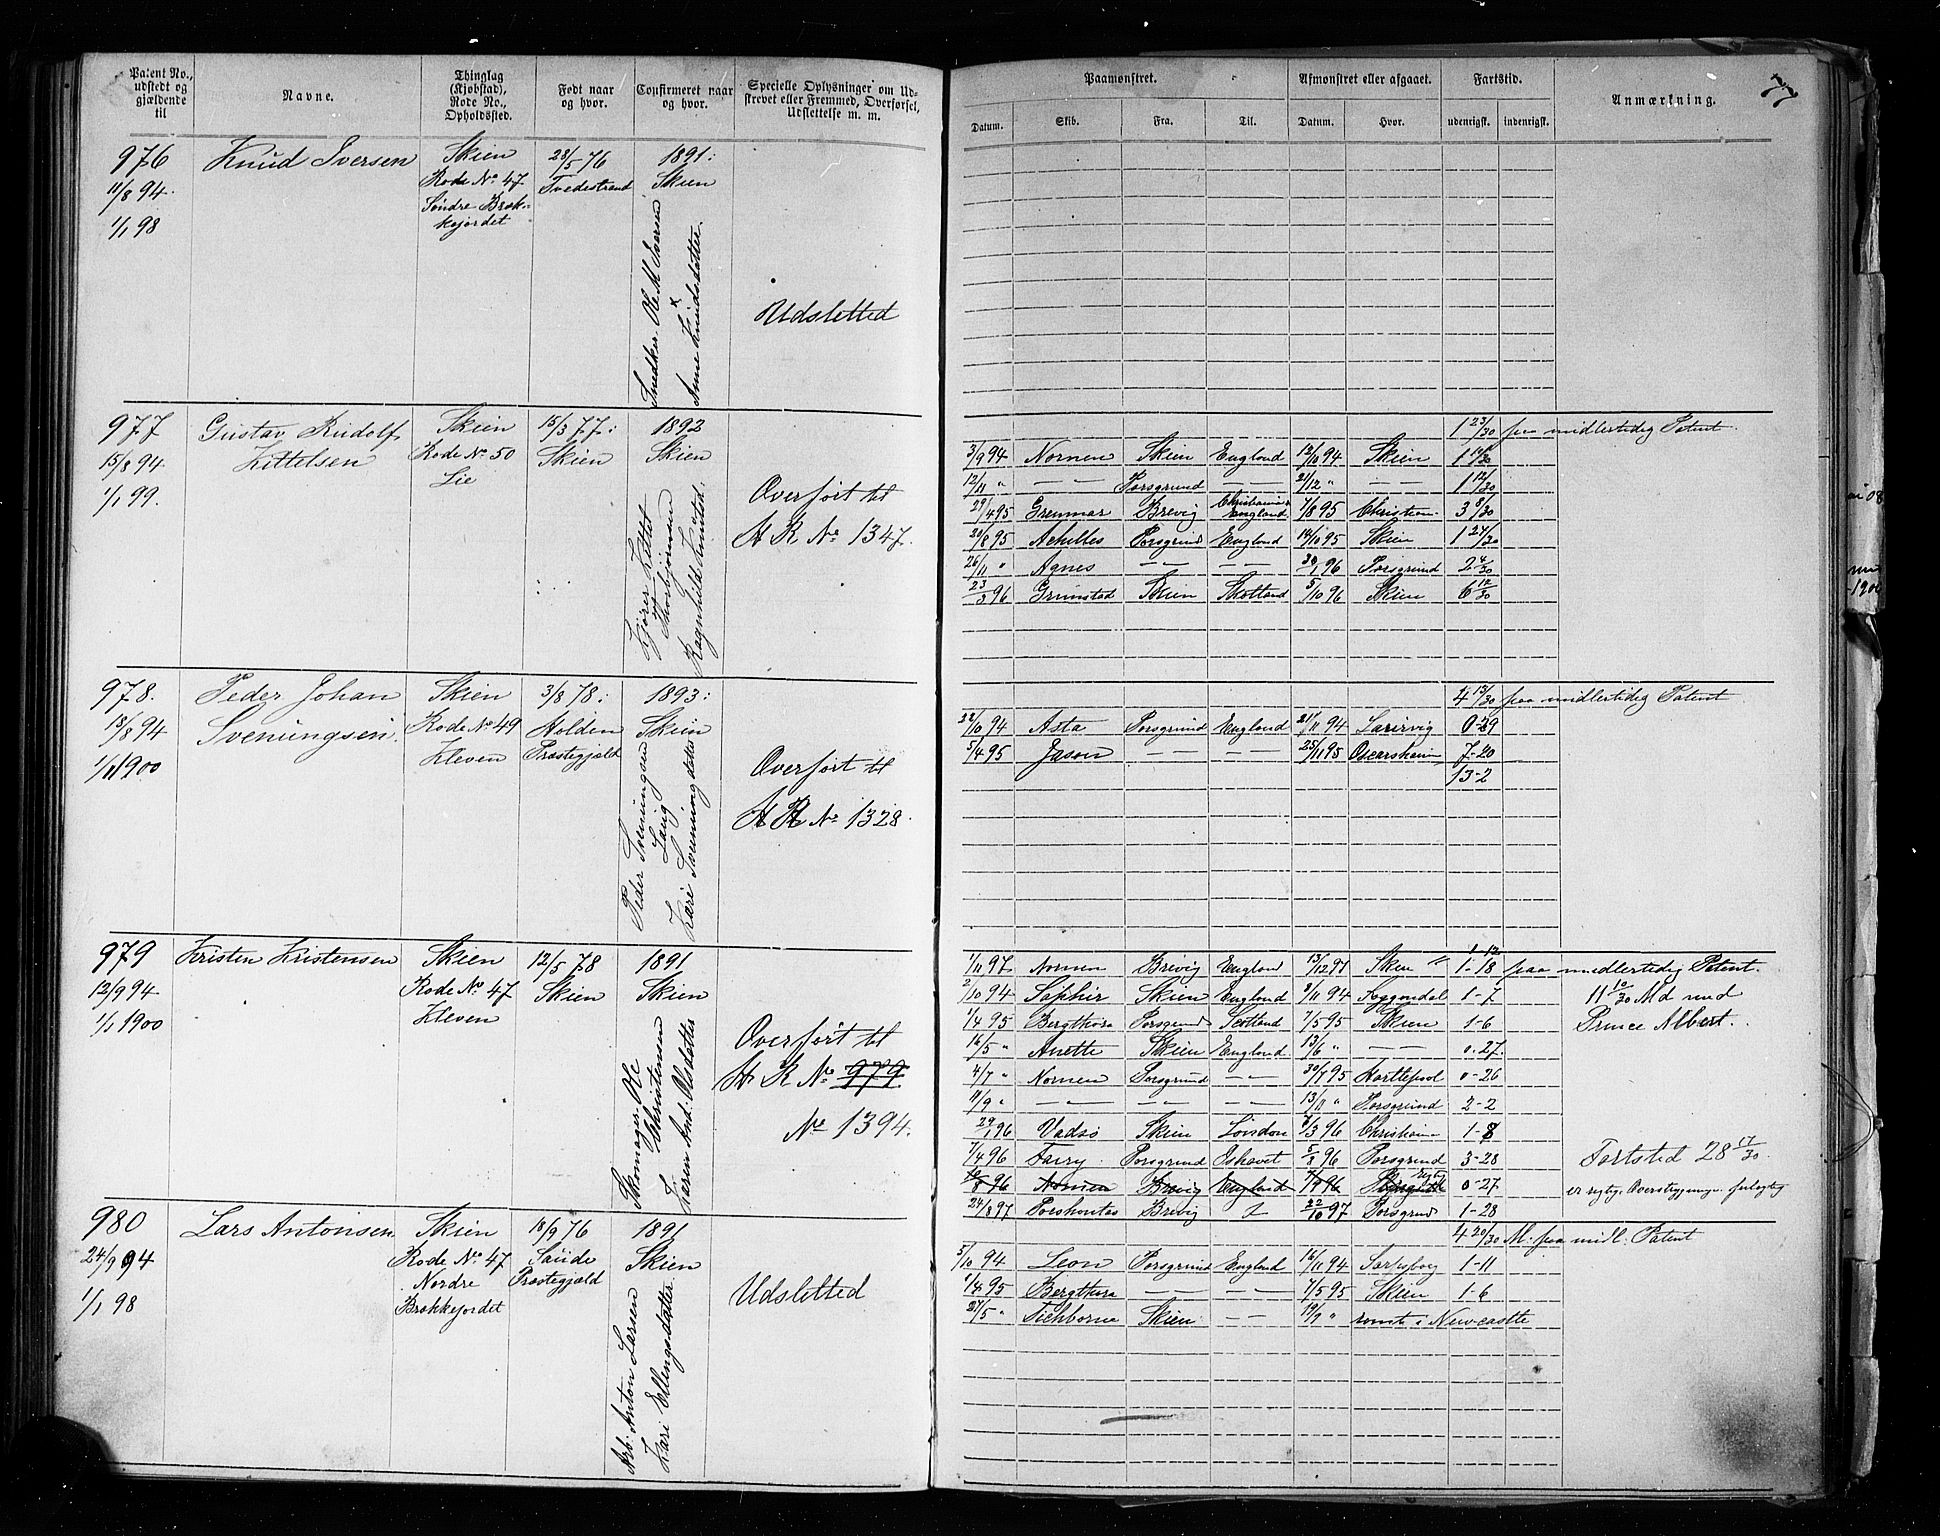 Patent No., udstedt og gjældende til
Navne.
Thinglag (Kjøbstad), Rode No., Opholdssted.
Født naar og hvor.
Confirmeret naar og hvor.
Specielle Oplysninger om Udskrevet eller Fremmed, Overførsel, Udslettelse m. m.
Paamønstret.
Afmønstret eller afgaaet.
Fartstid.
Anmærkning.
77
Datum.
Skib.
Fra.
Til.
Datum.
Hvor.
udenrigsk.
indenrigsk.
976
11/8 94.
1/1 98
Knud Iversen
Skien
Rode No 47
Søndre Brek-
kejordet
28/5 76
Tvedestrand
1891:
Skien
Snedker Ole M Iversen
x
Anne Knudsdatter.
Udsletted
977
15/8 94.
1/1 99.
Gustav Rudolf
Kittelsen
Skien
Rode No 50
Lie
15/3 77:
Skien
1892
Skien
Kjører Kittel
Thorbjørnsen
Ragnhilde Knutsd.
Overført til
H R No 1347.
1 23/30 paa midlertidig Patent.
3/9 94 Nornen Skien England 12/11 94 Skien 1 11/30
12/11 " — — Porsgrund 21/12 " — 1 12/30
29/4 95 Grenmar Brevig Christiania England 7/8 95 Christian- 3 8/30
20/8 95 Achilles Porsgrund England 14/10 95 Skien 1 24/30
26/11 " Agnes — — — — 30/1 96 Porsgrund 2 4/30
23/3 96 Grimstad Skien Skotland 5/10 96 Skien 6 12/30
978.
18/8 94
1/1 1900
Peder Johan
Sveningsen.
Skien
Rode No 49
Kleven
3/8 78:
Holden
Præstegjæld
1893:
Skien
Peder Sveinungsen
Kari Svenningdatter
Overført til
H R No 1328.
4 13/30 paa midlertidig Patent
22/10 94 Asta Porsgrund England 21/11 94 Larvig 0-29
5/4 95 Jason — — — 25/11 95 Oscarshamn 7-20
13-2
979
12/9 94
1/1 1900
Kristen Kristensen
Skien
Rode No 47
Kleven
12/5 78
Skien
1891
Skien
Skomager Ole
Christensen
Karen And: Olsdatter
Overført til
H. R No 979
No 1394.
1-12
1/11 97 Nornen Brevig England 13/12 97 Skien " 1-18 paa midlertidig Patent.
2/10 94 Saphir Skien England 9/11 94 1-7 11 10/30 Md med
1/4 95 Bergthora Porsgrund Scotland 7/5 95 Skien 1-6 Prince Albert.
16/5 " Anette Skien England 13/6 " — — 0-27.
4/7 " Nornen Porsgrund — — 30/7 95 Hartlepool 0-26
11/9 " — — — — — — 13/11 " Porsgrund 2-2
29/1 96 Vadsø Skien London 7/3 96 Christian- 1-8
7/4 96 Fairy Porsgrund Ishavet 5/8 96 Porsgrund 3-28 Fartstid 28 17/30.
10/8 96 Nornen Brevig England 7/9 96 rigtig 0-27 er rigtig, Overstrygninge
24/8 97 Brevig 22/10 97 Porsgrund 1-28
980
24/9 94
1/1 98
Lars Antonsen
Skien
Rode No 47
Nordre
Brekkejordet
18/9 76
Saude
Præstegjæld
1891
Skien
Arb: Anton Larsen
Kari Ellengsdatter
Udsletted
4 20/30 M: paa midl: Patent
5/10 94 Leon Porsgrund England 16/11 94 Sarpsborg 1-11
1/4 95 Bergthora — — — 7/5 95 Skien 1-6
27/5 " Tichborne Skien — — 19/7 " rømt i Newcastle